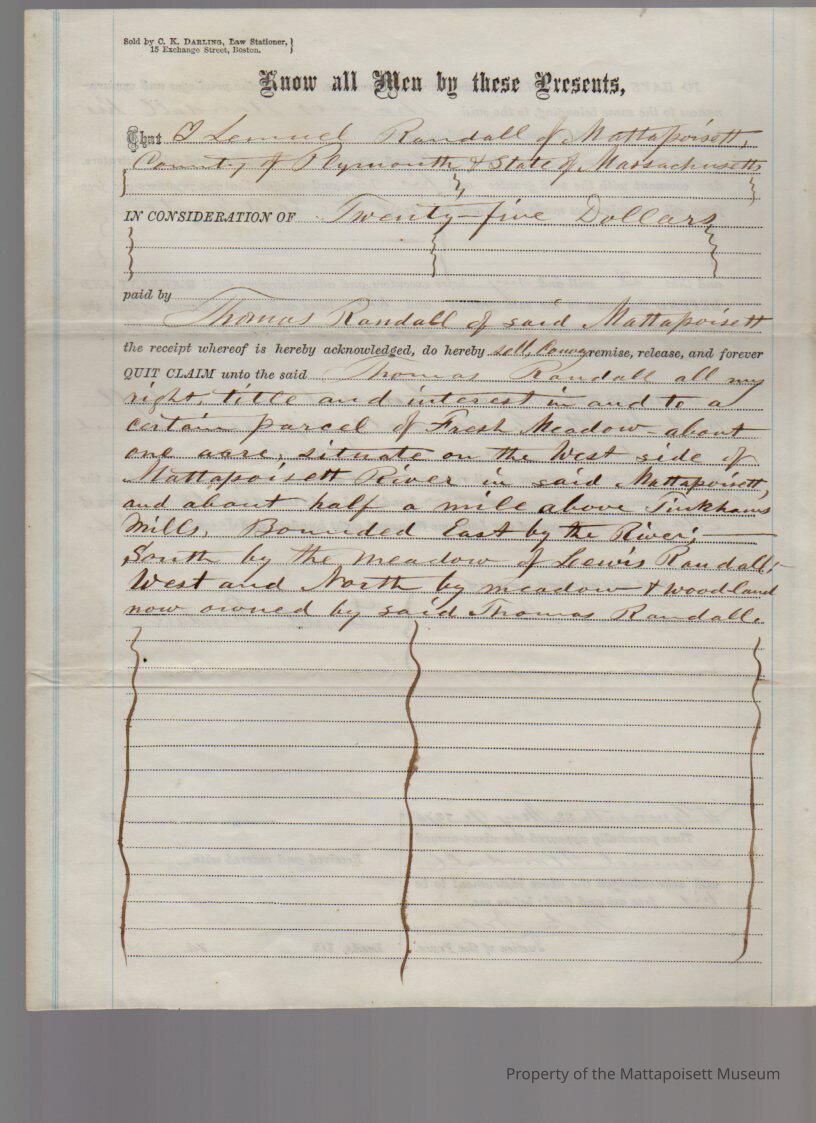 Sold by C. K. DARLING, Law Stationer,
15 Exchange Street, Boston.
Know all Men by these Presents,
That I Lemuel Randall of Mattapoisett,
County of Plymouth & State of Massachusetts
IN CONSIDERATION OF Twenty-five Dollars
paid by
Thomas Randall of said Mattapoisett
the receipt whereof is hereby acknowledged, do hereby sell, Convey remise, release, and forever
QUIT CLAIM unto the said Thomas Randall all my
right, title and interest in and to a
certain parcel of Fresh Meadow - about
one acre, situate on the West side of
Mattapoisett River in said Mattapoisett,
and about half a mile above Tinkhams
Mills, Bounded East by the River;
South by the meadow of Lewis Randall;
West and North by meadow & wood-land
now owned by said Thomas Randall.
Property of the Mattapoisett Museum